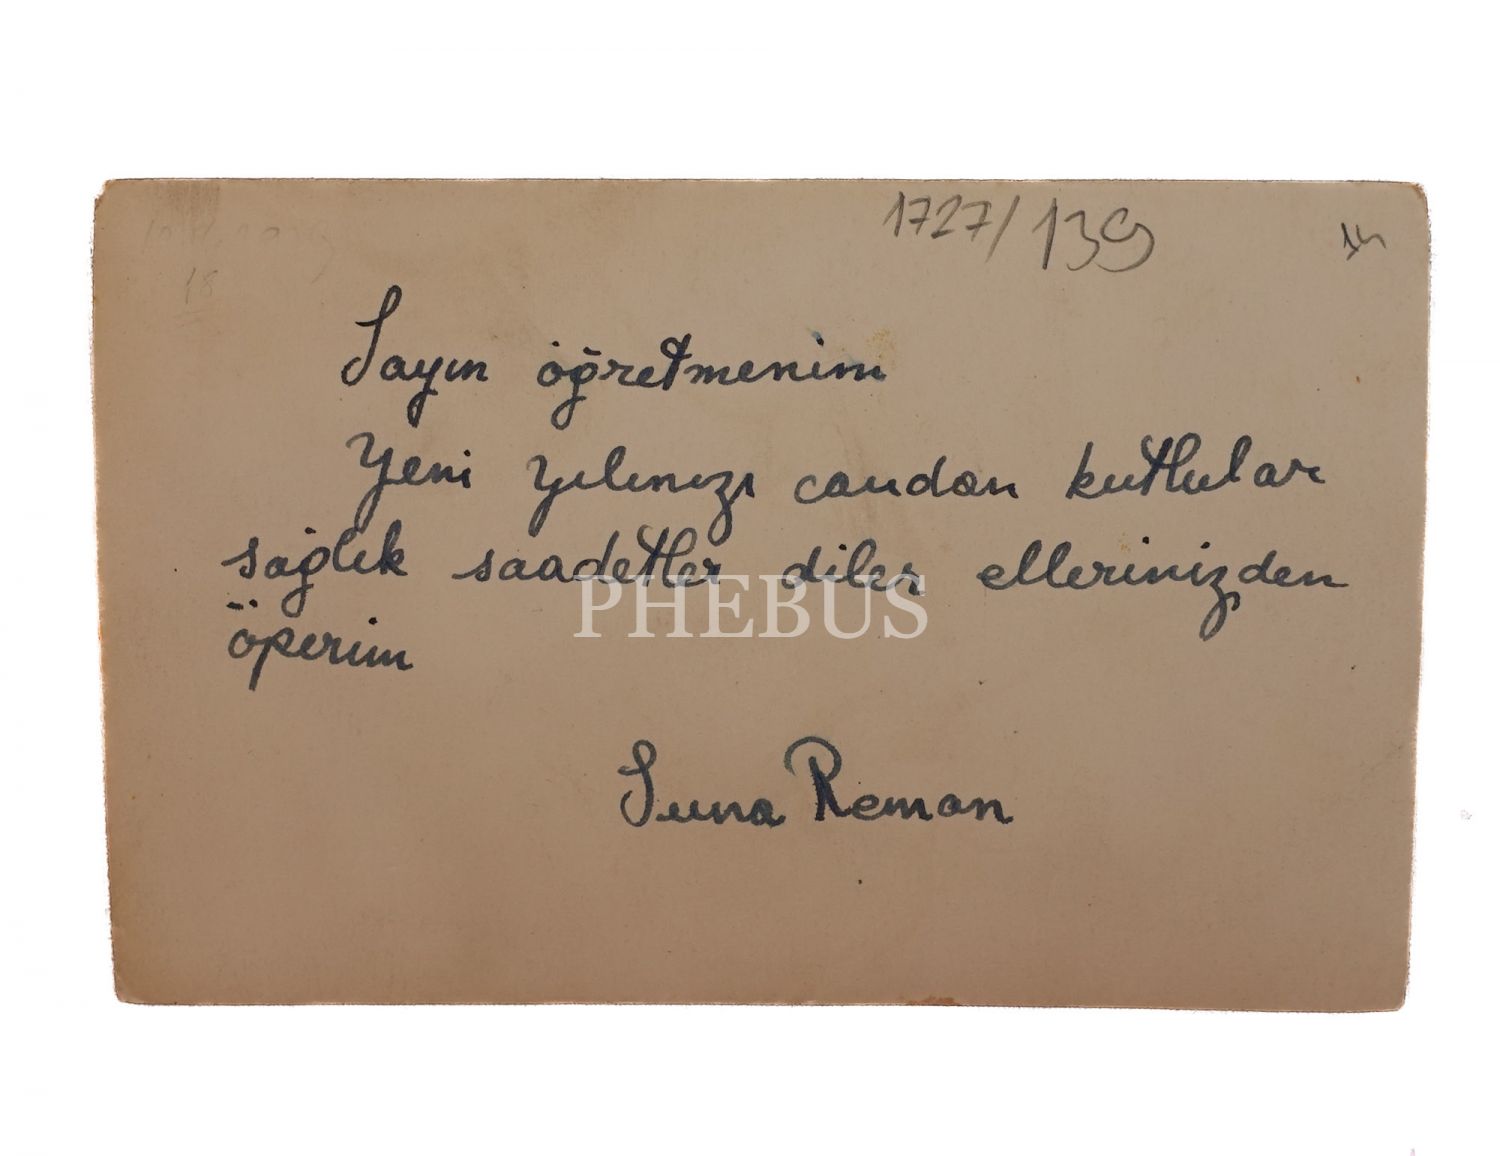 1727/139
18
Sayın öğretmenim
Yeni yılınızı candan kutlular
sağlık saadetler diler ellerinizden
öperim
PHEBUS
Suna Reman